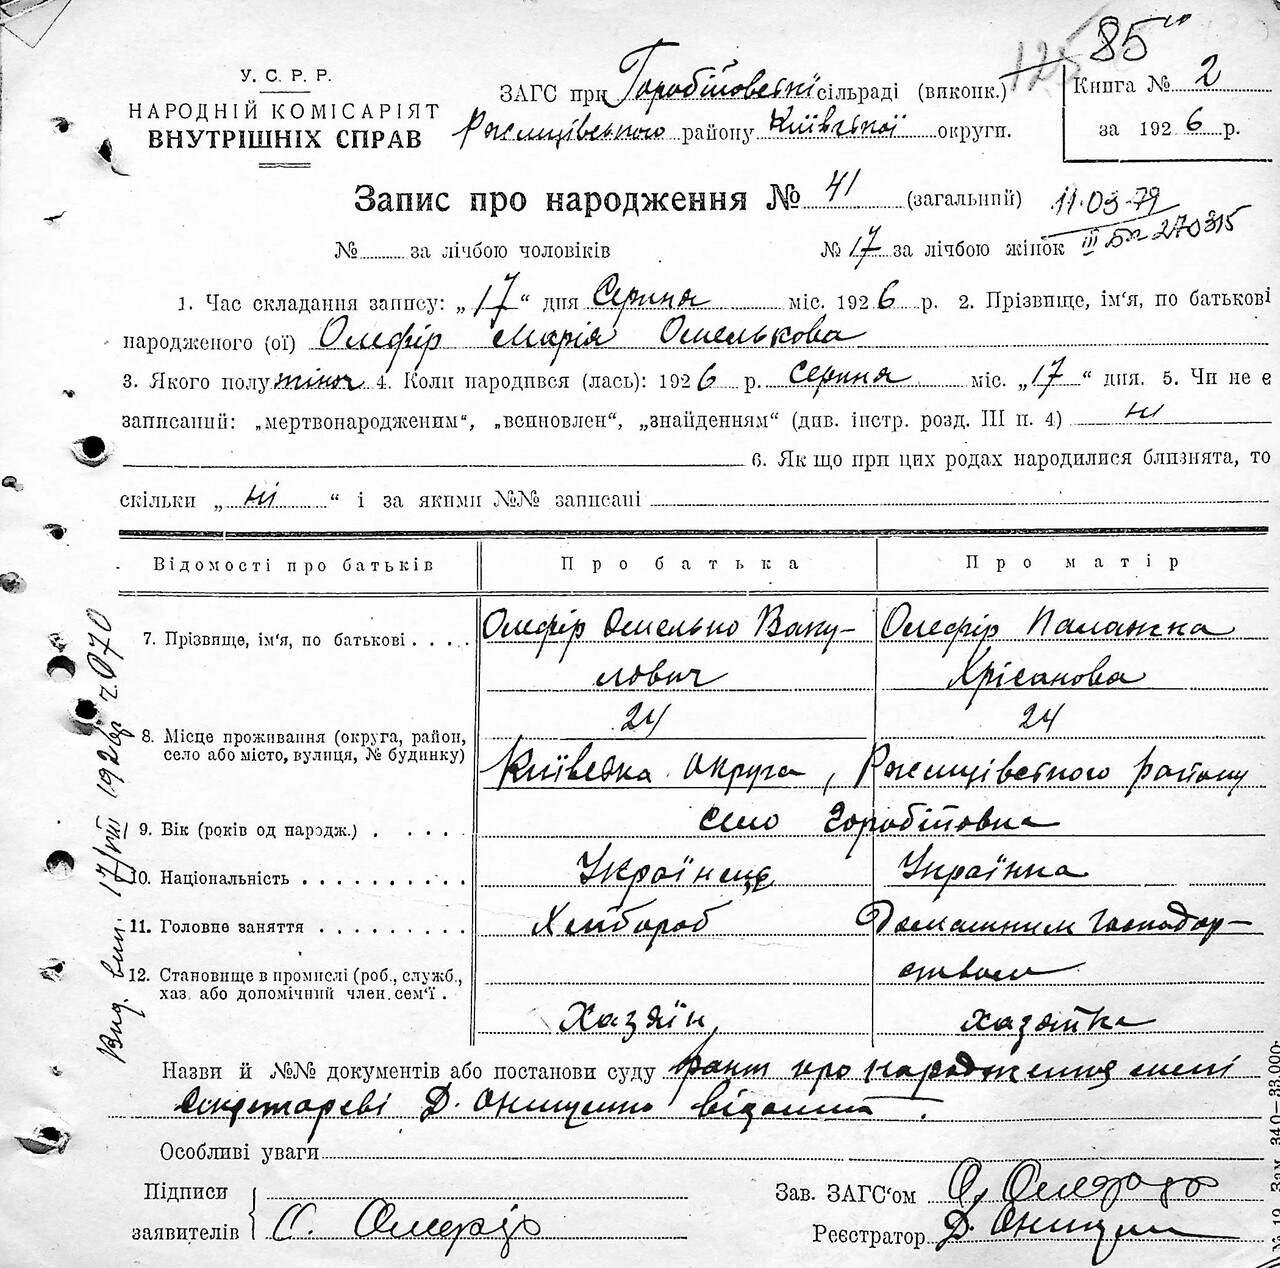 85
125
У. С. Р. Р.
НАРОДНІЙ КОМІСАРІЯТ
ВНУТРІШНІХ СПРАВ
ЗАГС при Горобіївській сільраді (виконк.)
Ржищівського району Київської округи.
Книга № 2
за 1926 р.
Запис про народження № 41 (загальний)
11.03.79
III БК 270315
№ за лічбою чоловіків № 17 за лічбою жінок
1. Час складання запису: „17“ дня Серпня міс. 1926 р. 2. Прізвище, ім'я, по батькові
народженого (ої) Олефір Марія Омелькова
3. Якого полу жіноч 4. Коли народився (лась): 1926 р. Серпня міс. „17“ дня. 5. Чи не є
записаний: „мертвонародженим“, „всиновлен“, „знайденням“ (див. інстр. розд. III п. 4) ні
6. Як що при цих родах народилися близнята, то
скільки „ні“ і за якими №№ записані
Відомості про батьків Про батька Про матір
7. Прізвище, ім'я, по батькові . . . . Олефір Омелько Ваку- Олефір Палажка
лович Хрісанова
24 24
8. Місце проживання (округа, район,
село або місто, вулиця, № будинку)
Київська округа, Ржищівського району
село Горобіївка
9. Вік (років од народж.) . . . . .
10. Національність . . . . . . . . . . Українець Українка
11. Головне заняття . . . . . . . . . Хлібороб Домашним господар-
ством
12. Становище в промислі (роб., служб.,
хаз. або допомічний член. сем'ї .
Хазяїн, хазяйка
Вид. вип. 17/VIII 1926р. 2070
Назви й №№ документів або постанови суду факт про народження мені
Секретареві Д. Онищенко відомий.
Особливі уваги
Підписи
заявителів О. Олефір
Зав. ЗАГС'ом О. Олефір
Реєстратор Д. Онищенко